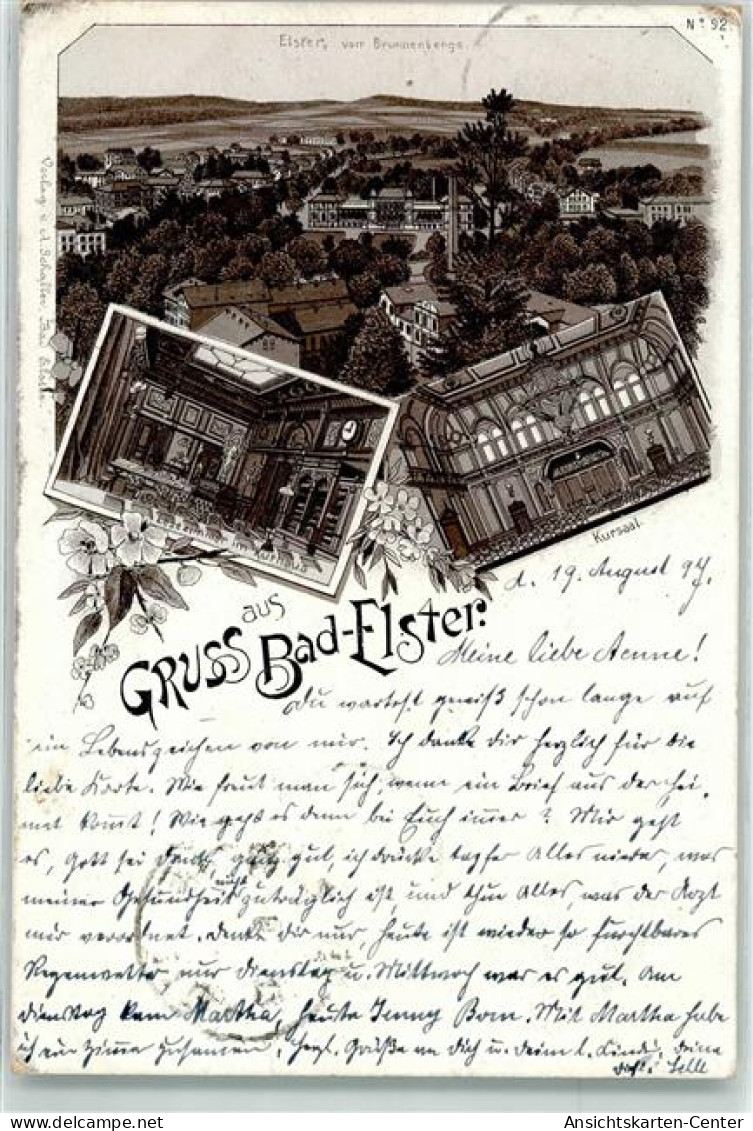 Nº 92
Elster, vom Brunnenberge.
Verlag v. A. Schaller
Lesezimmer im Kurhaus
Kursaal.
GRUSS aus Bad-Elster.
d. 19. August 97.
Meine liebe Aenne!
Du wartest gewiß schon lange auf
ein Lebenszeichen von mir. Ich danke dir herzlich für die
liebe Karte. Wie freut man sich, wenn ein Brief aus der Hei-
mat kommt! Wie geht es denn bei Euch immer? Mir geht
es, Gott sei Dank, ganz gut, ich drücke tapfer Alles nieder, was
meiner Gesundheit nicht zuträglich ist und thue Alles, was der Arzt
mir verordnet. Denke dir nur, heute ist wieder so furchtbares
Regenwetter nur Dienstag u. Mittwoch war es gut. Am
Dienstag kam Martha, heute Jenny Born. Mit Martha habe
ich ein Zimmer zusammen, herzl. Grüße an Dich u. deine l. Kinder, deine
Ansichtskarten-Center